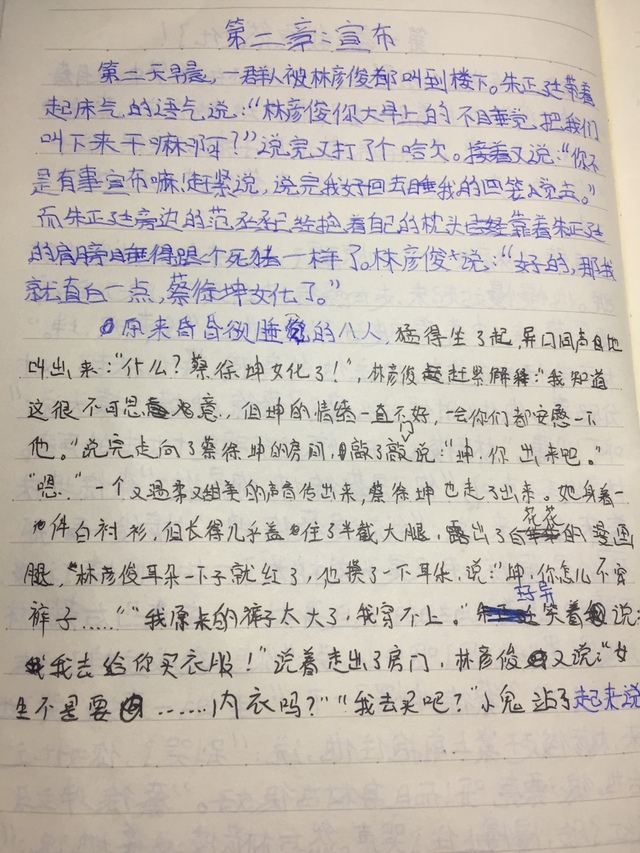 第二章:宣布
第二天早晨,一群人被林彦俊都叫到楼下。朱正廷带着
起床气的语气说:“林彦俊你大早上的不睡觉,把我们
叫下来干嘛呀?”说完又打了个哈欠。接着又说:“你不
是有事宣布嘛!赶紧说,说完我好回去睡我的回笼觉去。”
而朱正廷旁边的范丞丞抱着自己的枕头已经靠着朱正廷
的肩膀睡得跟个死猪一样了。林彦俊说:“好的,那我
就直白一点,蔡徐坤女化了。”
原来昏昏欲睡的八人,猛得坐了起,异口同声自地
叫出来:“什么?蔡徐坤女化了!”,林彦俊赶紧解释:“我知道
这很不可思意,但坤的情绪一直不好,一会你们都安慰一下
他。”说完走向了蔡徐坤的房间,敲了敲门说:“坤,你出来吧。”
“嗯.”一个又温柔又甜美的声音传出来,蔡徐坤也走了出来。她身着一
件白衬衫,但长得几乎盖住了半截大腿,露出了白花花的漫画
腿,林彦俊耳朵一下子就红了,他摸了一下耳朵,说:“坤,你怎么不穿
裤子……”“我原来的裤子太大了,我穿不上。”笑着说:
“我去给你买衣服!”说着走出了房门,林彦俊又说:“女
生不是要……内衣吗?”“我去买吧?”小鬼站了起来说